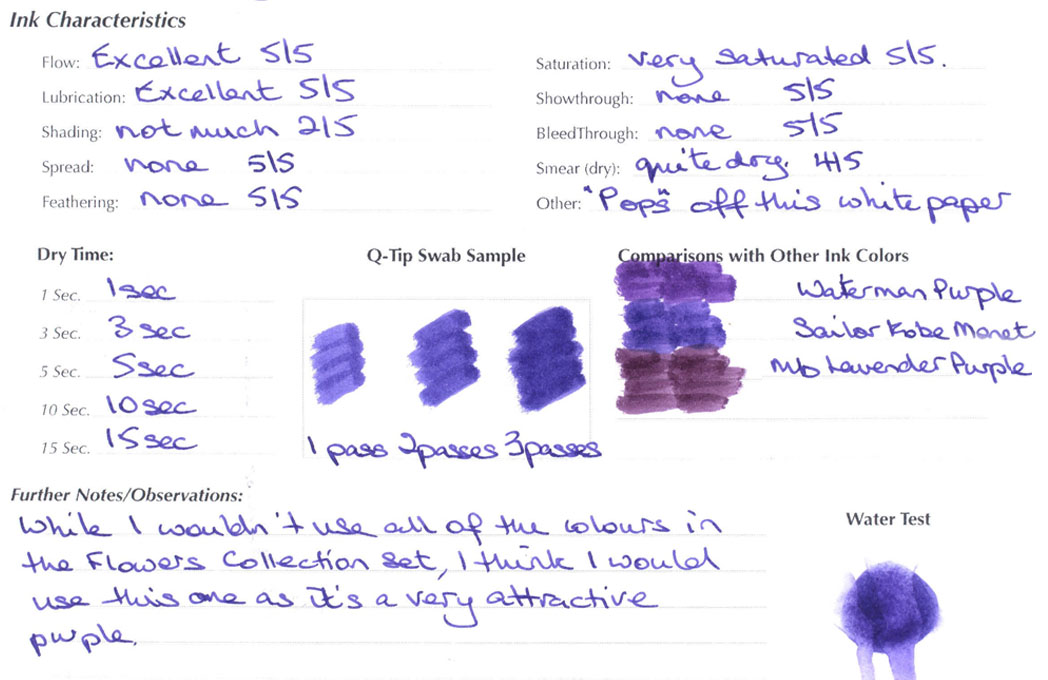 Ink Characteristics
Flow: Excellent 5/5
Lubrication: Excellent 5/5
Shading: not much 2/5
Spread: none 5/5
Feathering: none 5/5
Saturation: very saturated 5/5.
Showthrough: none 5/5
BleedThrough: none 5/5
Smear (dry): quite dry. 4/5
Other: "Pops" off this white paper
Dry Time:
1 Sec. 1sec
3 Sec. 3 sec
5 Sec. 5sec
10 Sec. 10sec
15 Sec. 15sec
Q-Tip Swab Sample
1 pass 2passes 3passes
Comparisons with Other Ink Colors
Waterman Purple
Sailor Kobe Monet
Mb Lavender Purple
Further Notes/Observations:
While I wouldn't use all of the colours in
the Flowers Collection set, I think I would
use this one as it's a very attractive
purple.
Water Test